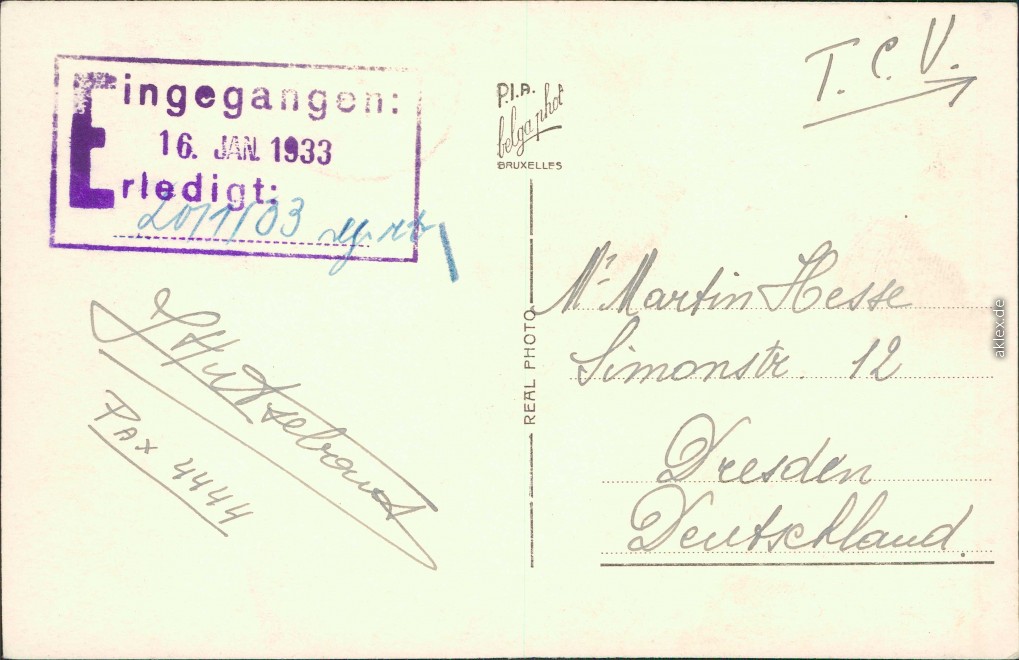 Eingegangen:
16. JAN. 1933
Erledigt:
20/1/03
PAX 4444
P.I.A.
belgaphot
BRUXELLES
REAL PHOTO
T. C. V.
Mr Martin Hesse
Simonstr. 12
Dresden
Deutschland.
aklex.de